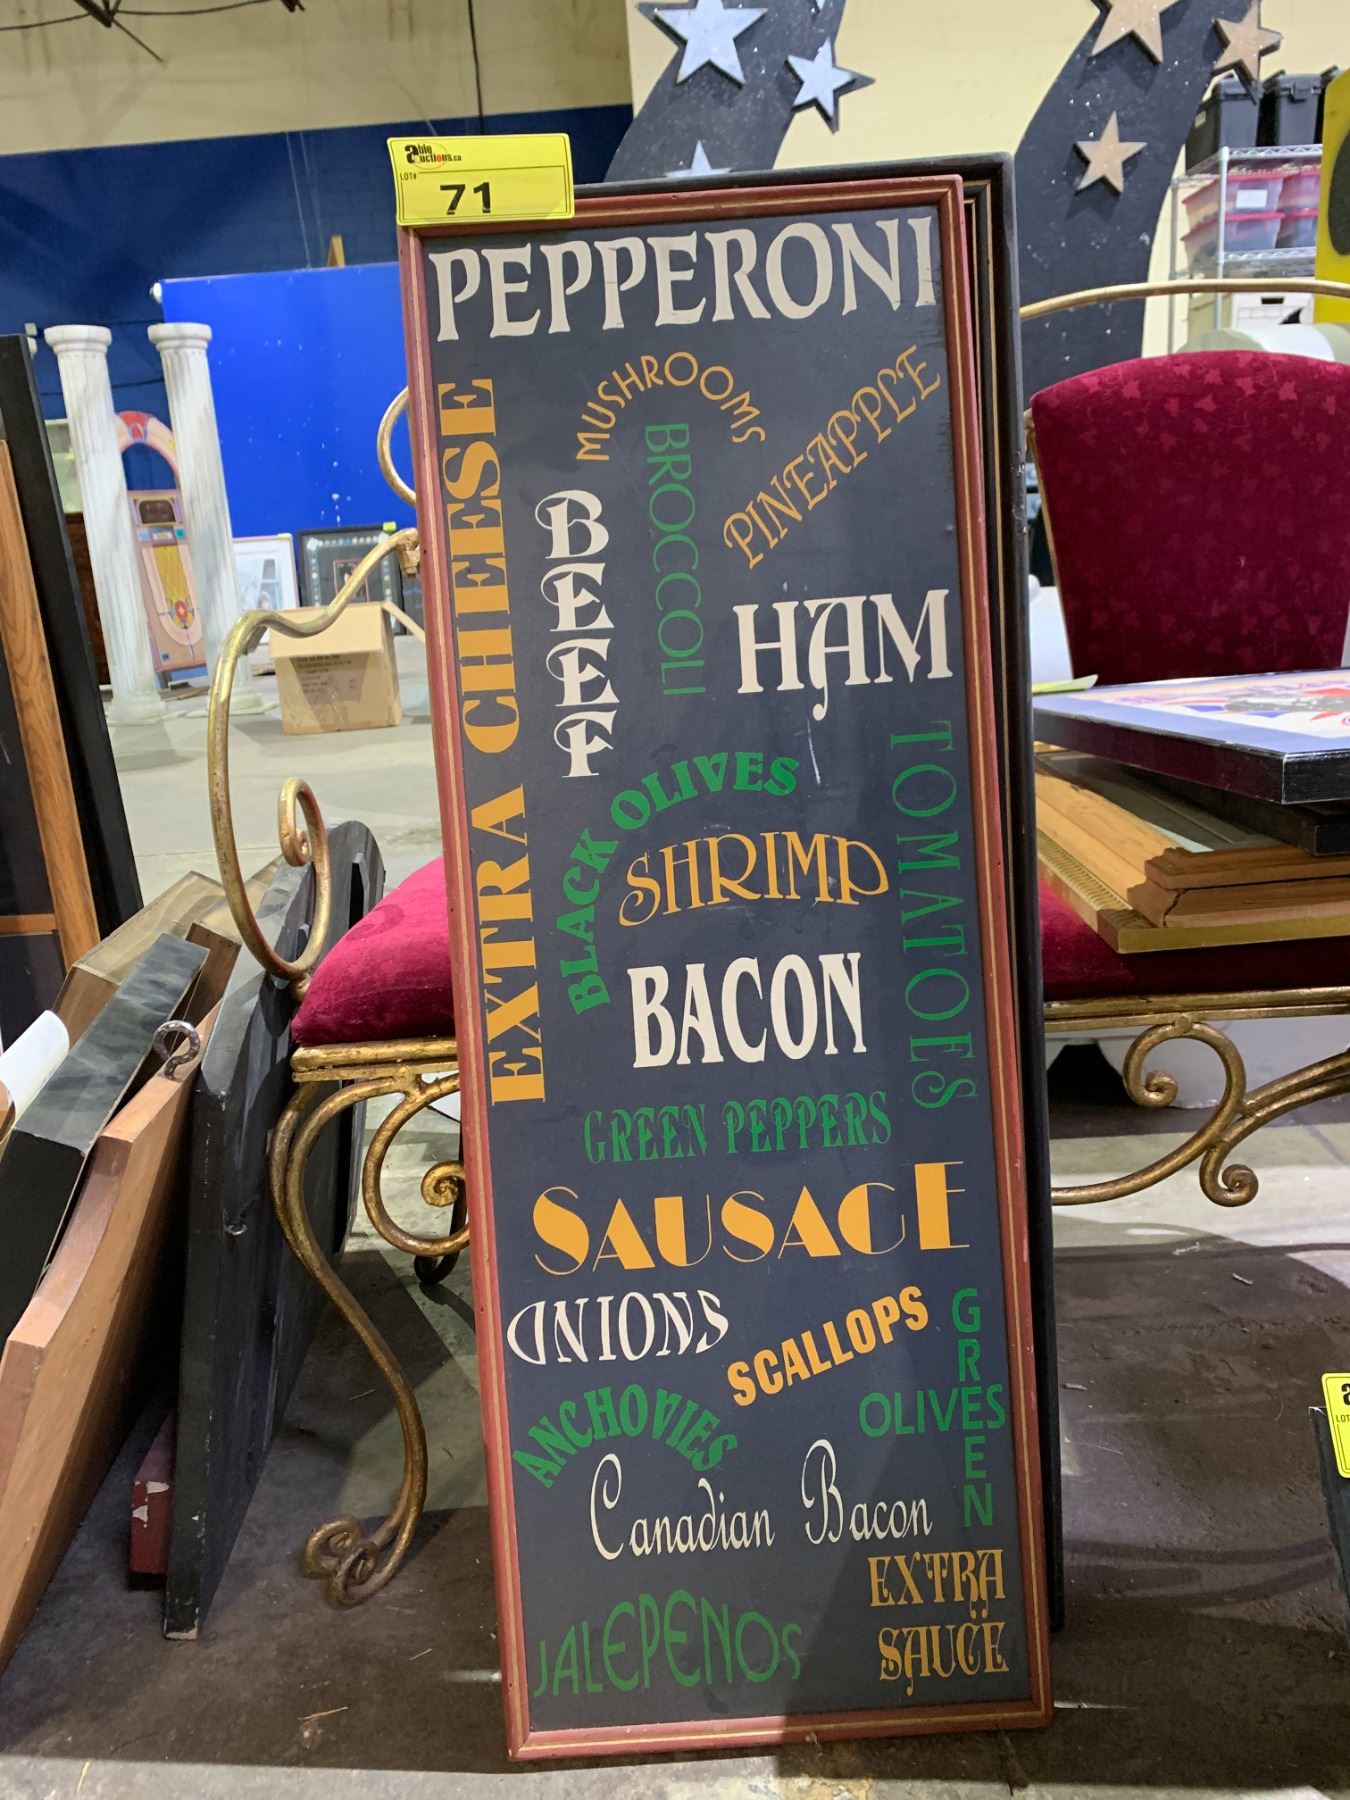 able
auctions.ca
LOT#
71
PEPPERONI
MUSHROOMS
PINEAPPLE
EXTRA CHEESE
BROCCOLI
BEEF
HAM
TOMATOES
BLACK OLIVES
SHRIMP
BACON
GREEN PEPPERS
SAUSAGE
ONIONS
SCALLOPS
GREEN
OLIVES
ANCHOVIES
Canadian Bacon
EXTRA
SAUCE
JALEPENOS
LOT